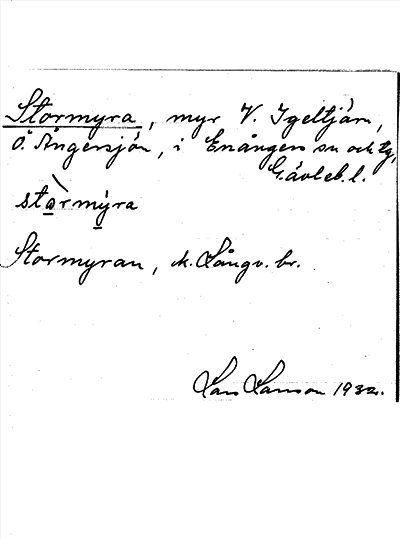 Stormyra, myr V. Igeltjärn,
Ö. Ångersjön, i Enången sn och tg,
Gävleb. l.
starmyra
Stormyran, k. Långv. br.
Lars Larsson 1932.